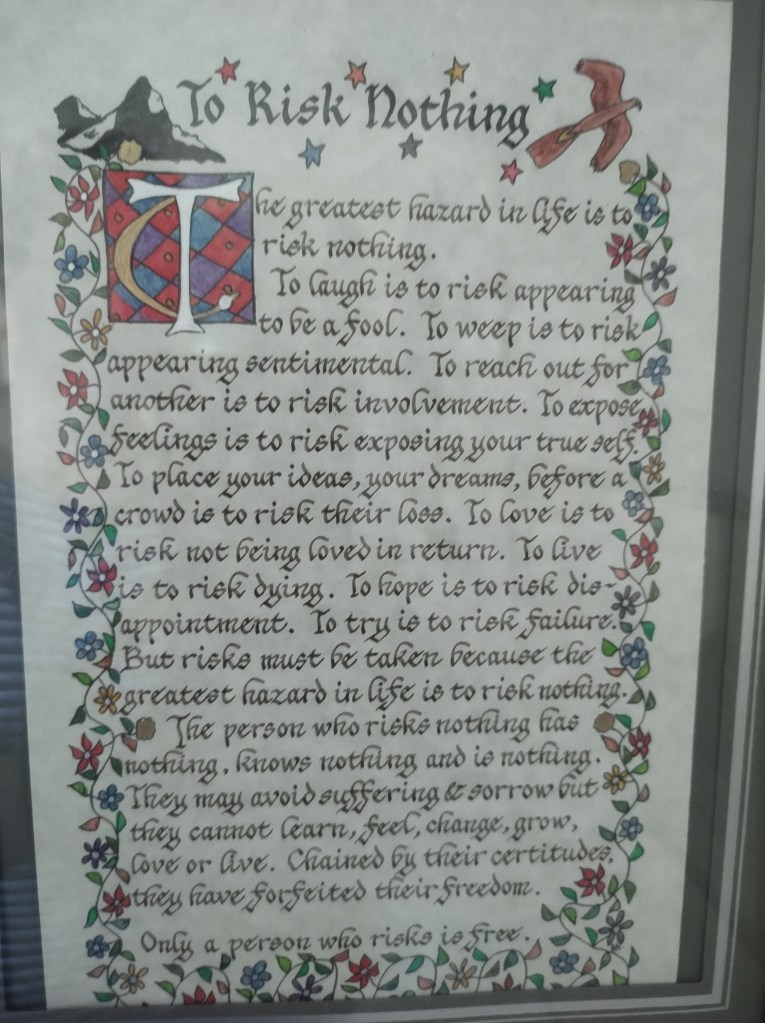 To Risk Nothing
The greatest hazard in life is to
risk nothing.
To laugh is to risk appearing
to be a fool. To weep is to risk
appearing sentimental. To reach out for
another is to risk involvement. To expose
feelings is to risk exposing your true self.
To place your ideas, your dreams, before a
crowd is to risk their loss. To love is to
risk not being loved in return. To live
is to risk dying. To hope is to risk dis-
appointment. To try is to risk failure.
But risks must be taken because the
greatest hazard in life is to risk nothing.
The person who risks nothing has
nothing, knows nothing and is nothing.
They may avoid suffering & sorrow but
they cannot learn, feel, change, grow,
love or live. Chained by their certitudes,
they have forfeited their freedom.
Only a person who risks is free.